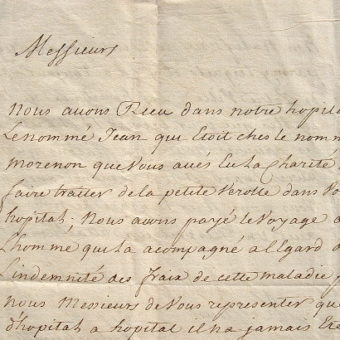 Messieurs
Nous avons Receu dans notre hopital
Le nommé Jean qui Etoit ches le nomm
morenon que Vous aves Eu La Charité
faire traiter de la petite Verolle dans Vo
hopital; Nous avons payé le Voyage a
L'homme qui La acompagné a l'Egard d
L'indemnité des fraix de cette maladie p
nous Messieurs de Vous representer que
d'hopital a hopital il n'a jamais Ete